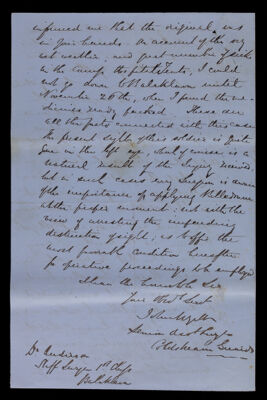 informed me that the original was
in your hands. On account of the very
wet weather, and great number of sick
in the Camp Hospital Tents, I could
not go down to Balaklava until
November 26th, when I found the
ready packed. These are
all the facts connected with this case
the present sight of the soldier is quite
in the left eye, which of course is a
natural result of the Injury received
but in such cases every Surgeon is aware
of the importance of applying Belladonna
at the proper moment: not with the
view of arresting the impending
destruction of sight, as to offer the
most favorable condition hereafter
for operative proceedings to be employed
I have the honor to be Sir
Your Obedt. Servt
John Wyatt
Senior Asst Surgn
Coldstream Guards
Dr Anderson
Staff Surgn 1st Class
Balaklava